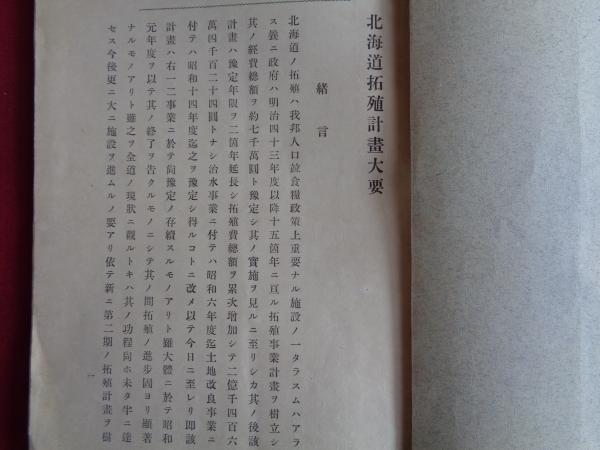 北海道拓殖計畫大要
緒言
北海道ノ拓殖ハ我邦人口竝食糧政策上重要ナル施設ノ一タラスムハアラ
ス曩ニ政府ハ明治四十三年度以降十五箇年ニ亘ル拓殖事業計畫ヲ樹立シ
其ノ經費總額ヲ約七千萬圓ト豫定シ其ノ實施ヲ見ルニ至リシカ其ノ後該
計畫ハ豫定年限ヲ二箇年延長シ拓殖費總額ヲ累次增加シテ二億千四百六
萬四千百二十四圓トナシ治水事業ニ付テハ昭和六年度迄土地改良事業ニ
付テハ昭和十四年度迄之ヲ豫定シ得ルコトニ改メ以テ今日ニ至レリ即該
計畫ハ右一二事業ニ於テ尙豫定ノ存續スルモノアリト雖大體ニ於テ昭和
元年度ヲ以テ其ノ終了ヲ吿クルモノニシテ其ノ間拓殖ノ進步固ヨリ顯著
ナルモノアリト雖之ヲ全道ノ現狀ニ觀ルトキハ其ノ功程尙ホ未タ半ニ達
セス今後更ニ大ニ施設ヲ進ムルノ要アリ依テ新ニ第二期ノ拓殖計畫ヲ樹
一